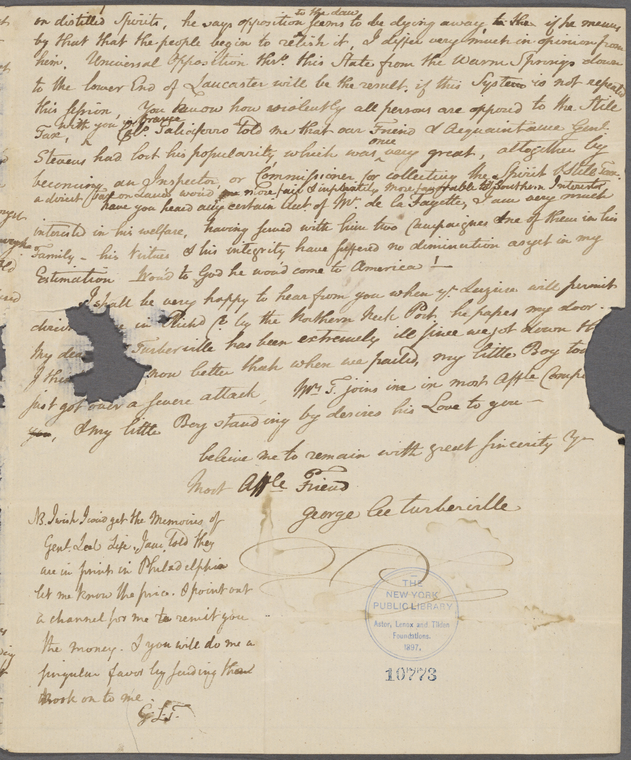 on distilled Spirits, he says opposition to the law seems to be dying away, if he means
by that that the people begin to relish it, I differ very much in opinion from
him. Universal Opposition thro. this State from the Warm Springs down
to the lower End of Lancaster will be the result, if this System is not repeated
this session, You know how violently all persons are opposed to the Still
Tax, with you in Orange Col. Taliaferro Told me that our Friend & Acquaintance Genl.
Stevens had lost his popularity which was once very great, altogether by
becoming an Inspector or Commissioner for collecting the Spirit & Still Tax.
a direct Tax on Land would be more fair & infinitely more favorable to Southern Interests
have you heard any certain Acct of Mr. de la Fayette, I am very much
interested in his welfare, having served with him two Campaigns & one of them in his
Family – his Virtues & his integrity have suffered no diminution as yet in my
Estimation Wou'd to God he wou'd come to America!
I shall be very happy to hear from you when yr Leizure will permit
in by the Northern Neck Post, he passes my door.
My Turberville has been extremely ill since we got down
I now better than when we parted, my little Boy too
just got over a severe attack, Mrs. T. joins me in most Affte
you, & my little Boy standing by desires his Love to you –
believe me to remain with great sincerity Yr
Most Affte Friend
George Lee Turberville
NB. I wish I cou'd get the Memoirs of
Genl. Lees Life, I am Told they
are in print in Philadelphia
let me know the price. & point out
a channel for me to remit you
the money. & you will do me a
singular favor by sending the
Book on to me.
G. L. T.
THE
NEW YORK
PUBLIC LIBRARY
Astor, Lenox and Tilden
Foundations.
1897.
10773